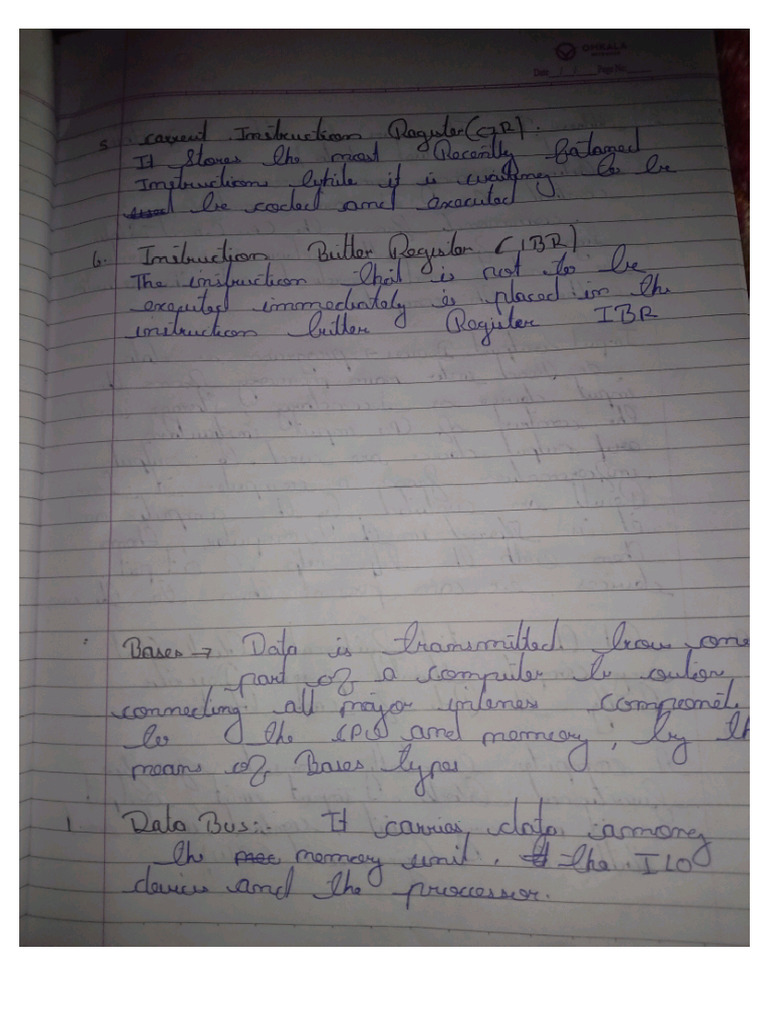 OMKALA
Date / / Page No.
5. current Instruction Register (CIR).
It stores the most Recently fatamed
Instruction while it is waiting to be
be coded and executed
6. Instruction Butter Register (IBR)
The instruction that is not to be
executed immediately is placed in the
instruction butter Register IBR
Bases → Data is transmitted from one
part of a computer to
connecting all major component
to the CPU and memory, by th
means of Bases types
1 Data Bus:- It carries data among
the memory unit, the I/O
devices and the processor.